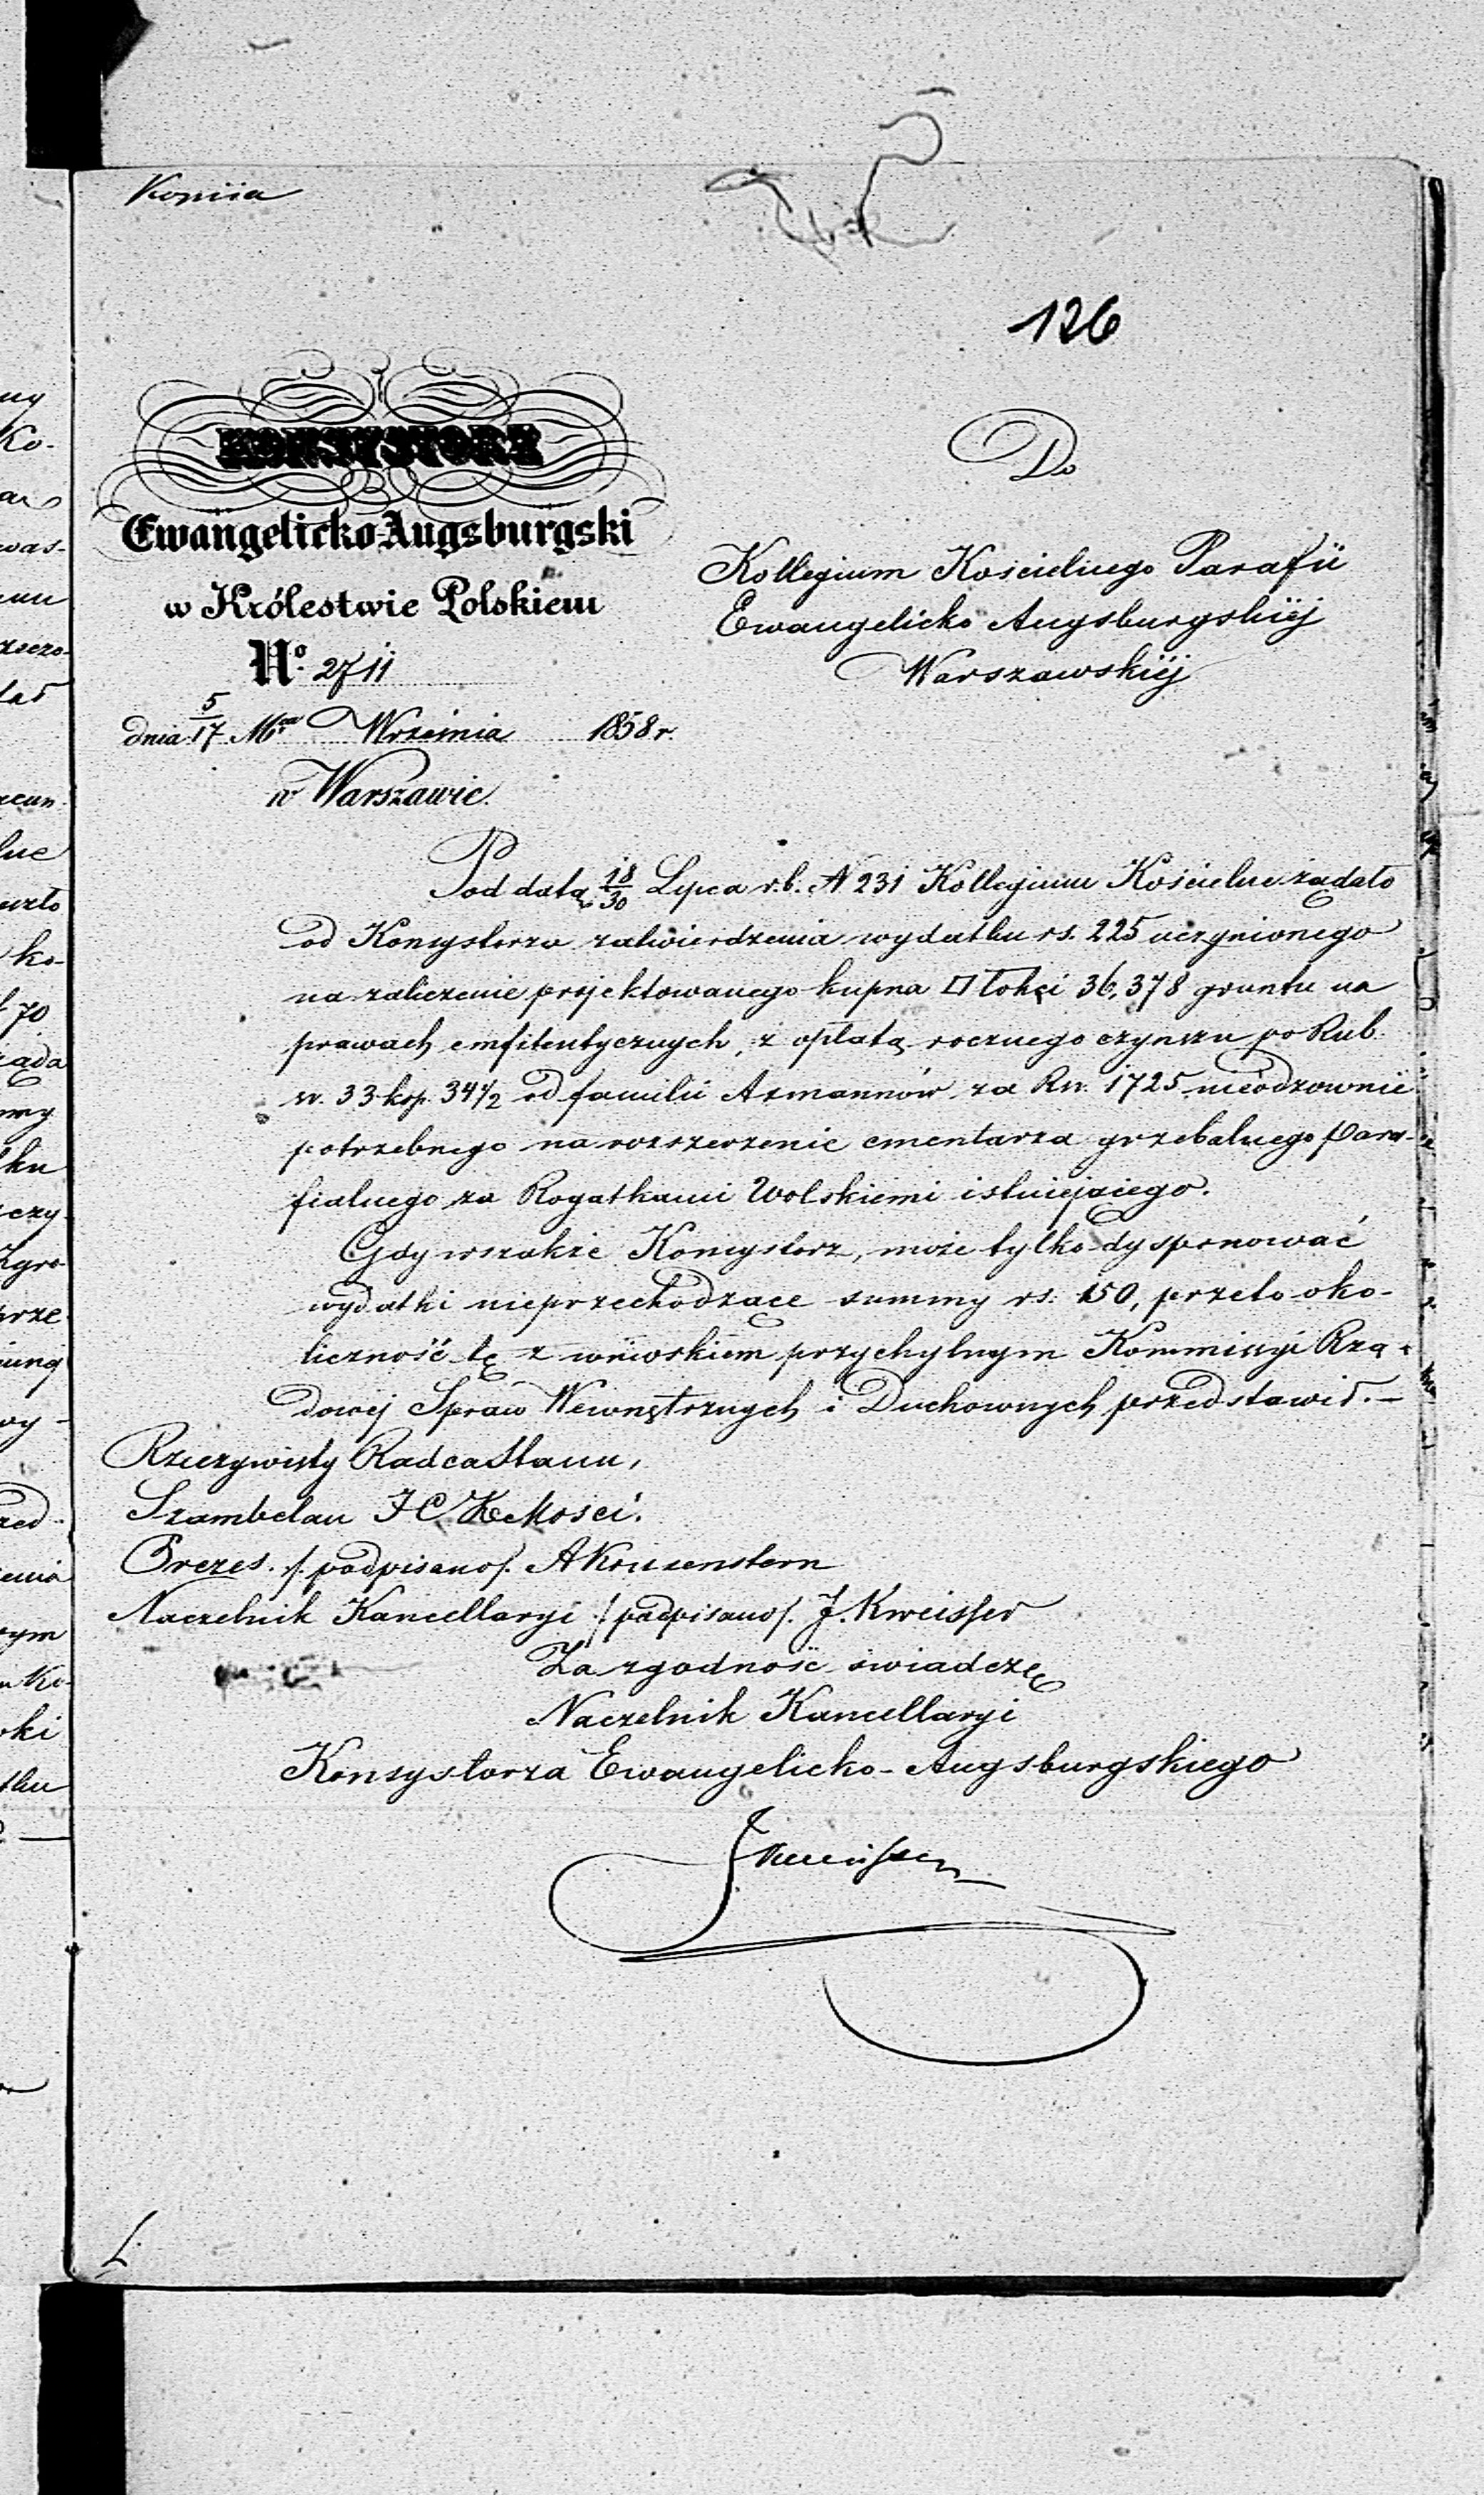 Kopiia
126
KONSYSTORZ
Ewangelicko-Augsburgski
w Królestwie Polskiem
No. 2711
dnia 5/17 Mca Września 1858 r.
w Warszawie.
Do
Kollegium Kościelnego Parafii
Ewangelicko Augsburgskiéj
Warszawskiéj
Pod datą 18/30 Lipca r.b. N 231 Kollegium Kościelne żądało
od Konsystorza zatwierdzenia wydatku rs. 225 uczynionego
na zaliczenie projektowanego kupna □ łokci 36,378 gruntu na
prawach emfiteutycznych, z opłatą rocznego czynszu po Rub.
sr. 33 kop. 34 1/2 od familii Asmannów za Rsr. 1725 nieodzownie
potrzebnego na rozszerzenie cmentarza grzebalnego para-
fialnego za Rogatkami Wolskiemi istniejącego.
Gdy wszakże Konsystorz, może tylko dysponować
wydatki nieprzechodzące summy rs. 150, przeto oko-
liczność tę z wnioskiem przychylnym Kommissyi Rzą-
dowej Spraw Wewnętrznych i Duchownych przedstawił.—
Rzeczywisty Radca Stanu,
Szambelan JC Kr Mości.
Prezes. /. podpisano/. A Kruzenstern
Naczelnik Kancellaryi /podpisano/. J. Kweisser
Za zgodność świadczę
Naczelnik Kancellaryi
Konsystorza Ewangelicko-Augsburgskiego
JKweisser